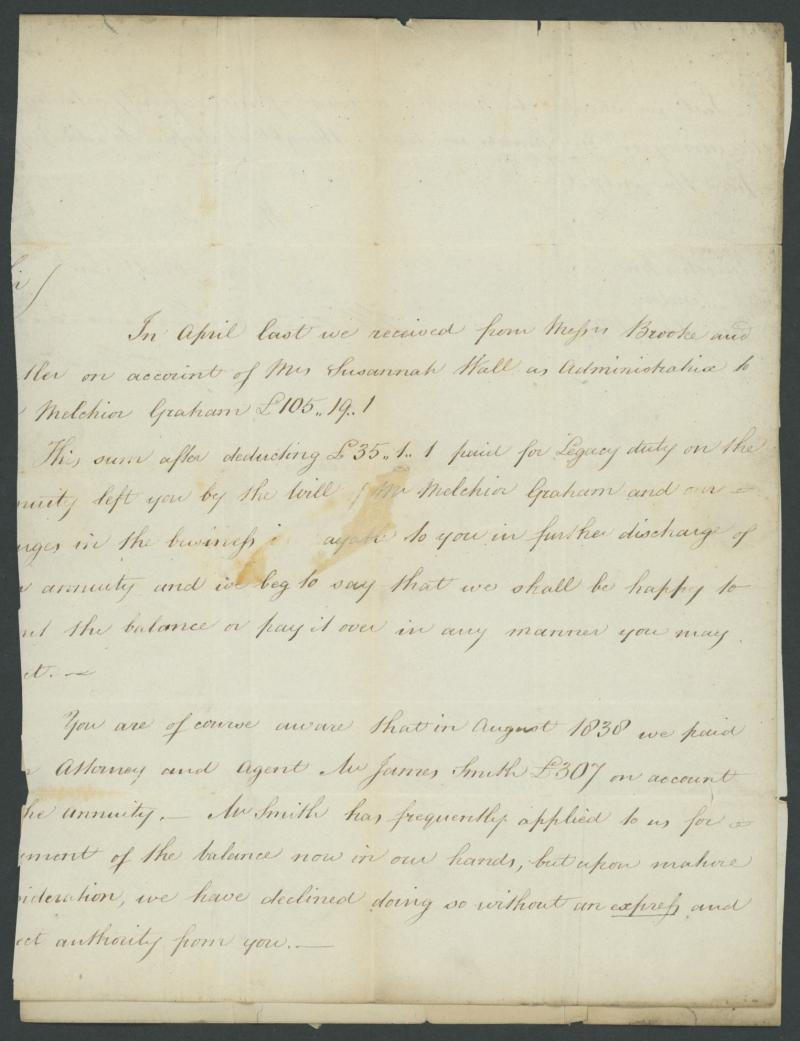 In April last we received from Messrs Brooke and
ller on account of Mrs Susannah Wall as Administratrix to
Melchior Graham £105.. 19.. 1
This sum after deducting £35.. 1.. 1 paid for Legacy duty on the
nuity left you by the Will Mr Melchior Graham and our
rges in the business ayable to you in further discharge of
annuity and we beg to say that we shall be happy to
nt the balance or pay it over in any manner you may
ct. —
You are of course aware that in August 1838 we paid
r Attorney and Agent Mr James Smith £307 on account
he annuity. — Mr Smith has frequently applied to us for
yment of the balance now in our hands, but upon mature
sideration, we have declined doing so without an express and
ect authority from you. —